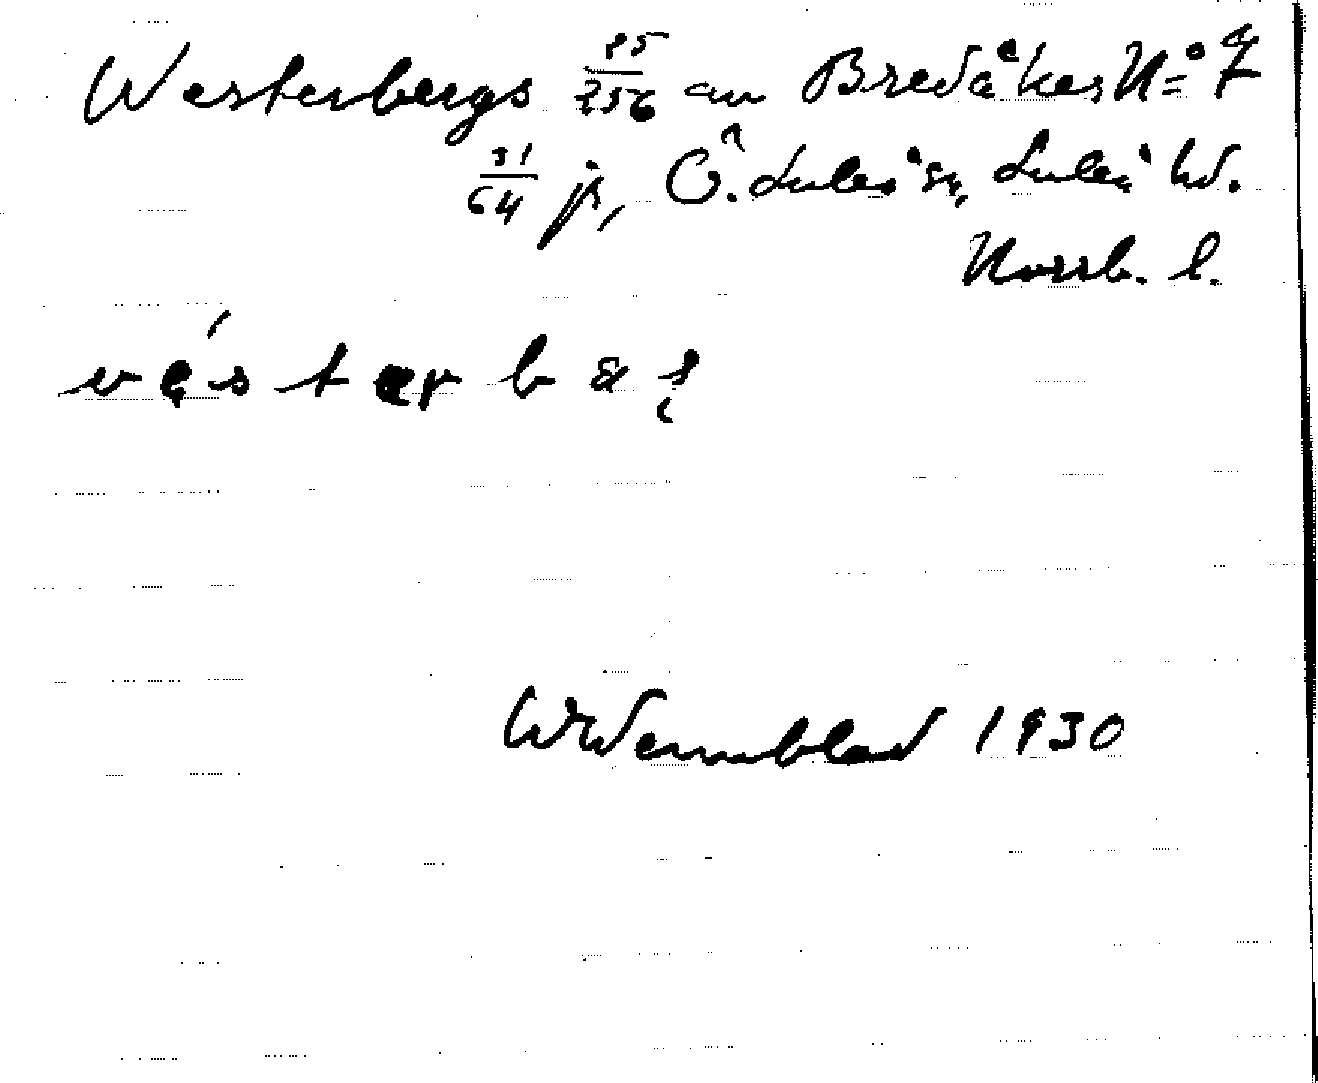 Westerbergs 85/256 av Bredåker N=o 7
31/64 jr, Ö. Luleå sn, Luleå hd.
Norrb. l.
Wennblad 1930